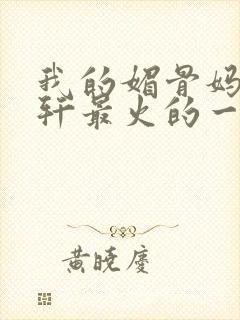 我的媚骨妈
轩最火的一
黄晓庆